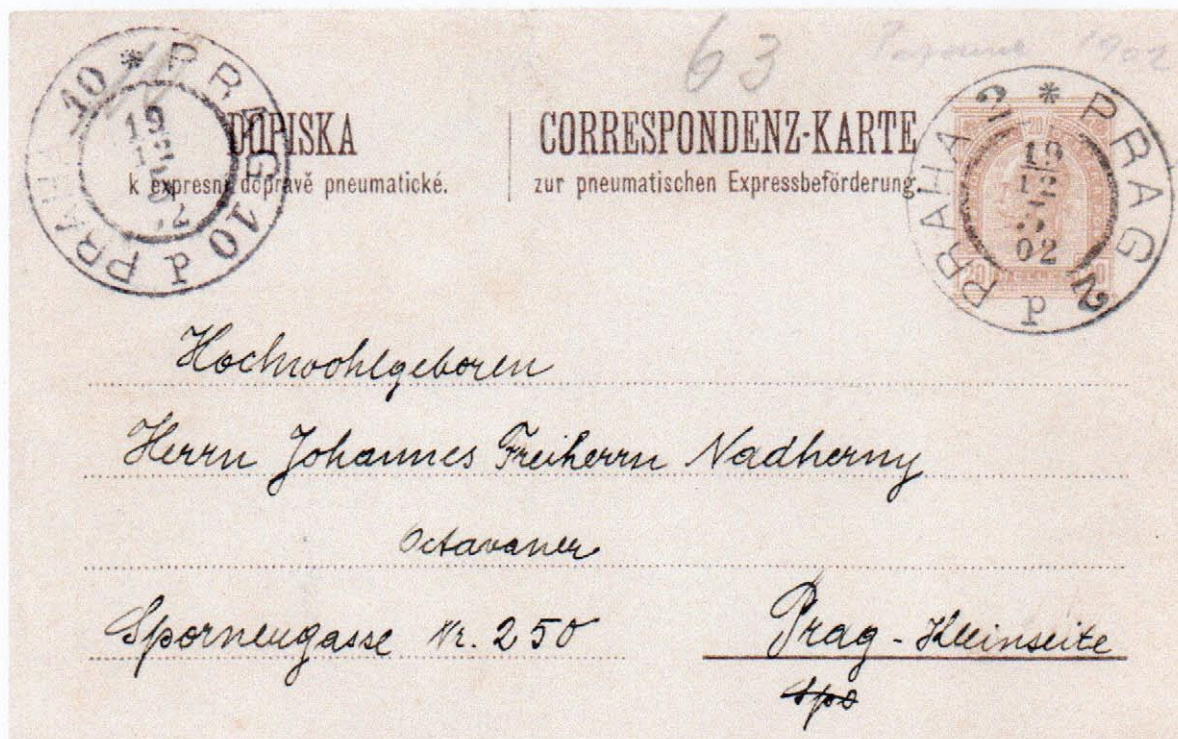 63
1902
PRAG 10 d PRAHA 10
DOPISKA
k expresní dopravě pneumatické.
CORRESPONDENZ-KARTE
zur pneumatischen Expressbeförderung.
PRAG 2 d PRAHA 2
19
12
02
20
20
Hochwohlgeboren
Herrn Johannes Freiherrn Nadherny
Octavaner
Spornengasse Nr. 250
Prag - Kleinseite
Spo